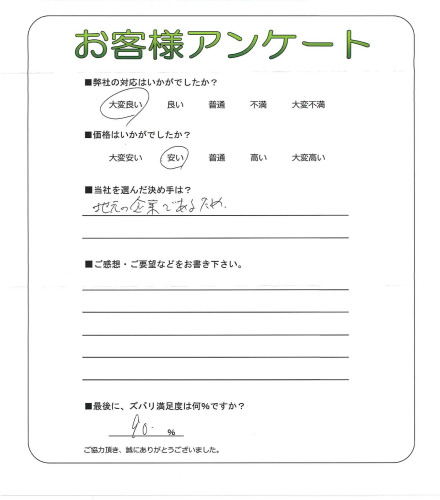 お客様アンケート
■弊社の対応はいかがでしたか？
大変良い 良い 普通 不満 大変不満
■価格はいかがでしたか？
大変安い 安い 普通 高い 大変高い
■当社を選んだ決め手は？
地元の企業であるため.
■ご感想・ご要望などをお書き下さい。
■最後に、ズバリ満足度は何%ですか？
90. %
ご協力頂き、誠にありがとうございました。